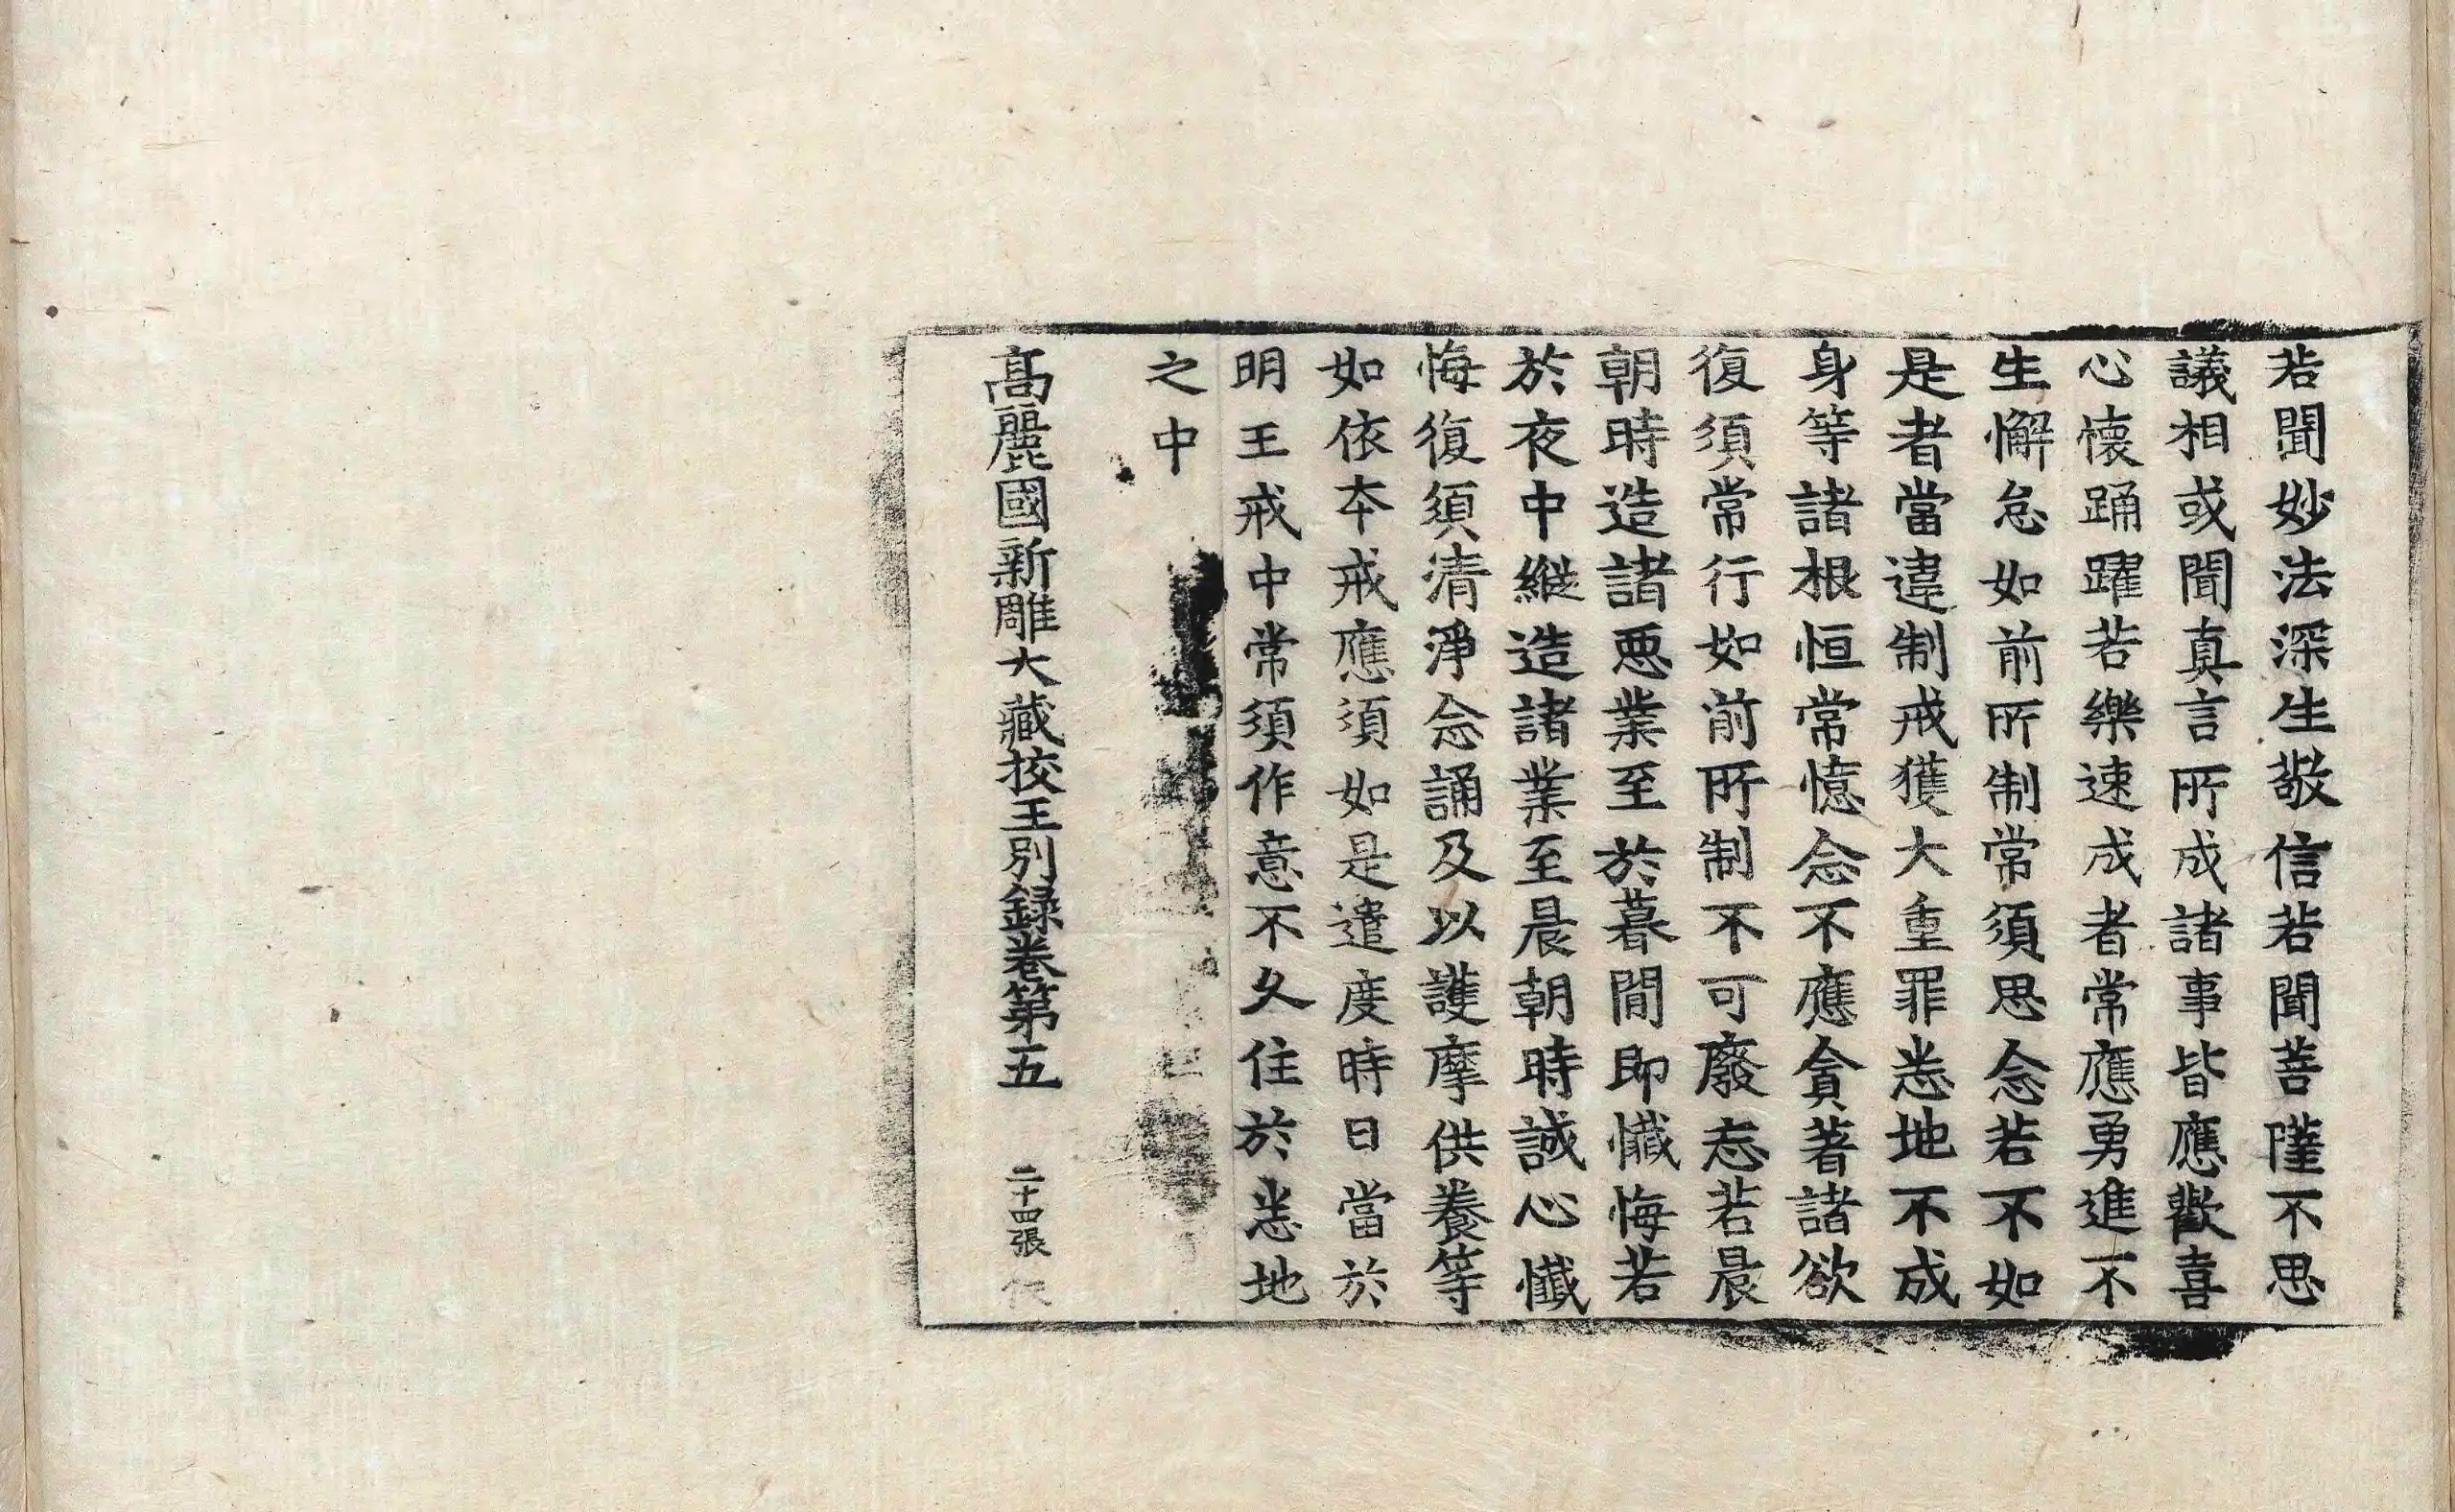 若聞妙法深生敬信若聞菩薩不思
議相或聞真言所成諸事皆應歡喜
心懷踊躍若樂速成者常應勇進不
生懈怠如前所制常須思念若不如
是者當違制戒獲大重罪悉地不成
身等諸根恒常憶念不應貪著諸欲
復須常行如前所制不可廢忘若晨
朝時造諸悪業至於暮間即懺悔若
於夜中縱造諸業至晨朝時誠心懺
悔復須清淨念誦及以護摩供養等
如依本戒應須如是遣度時日當於
明王戒中常須作意不久住於悉地
之中
高麗國新雕大藏挍正別録卷第五 二十四張